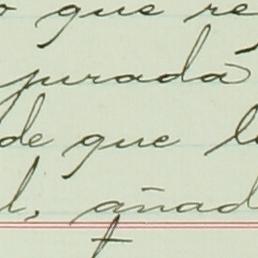 o que re
jurada
de que l
l, añad